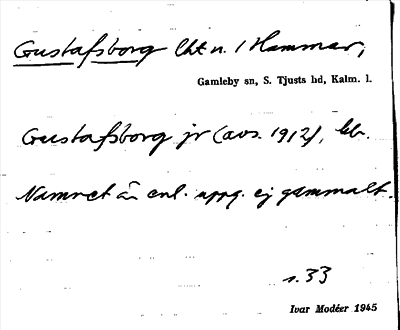 Gustafsborg lht n. 1 Hammar,
Gamleby sn, S. Tjusts hd, Kalm. l.
Gustafsborg jr (avs. 1912), lht.
Namnet är enl. uppg. ej gammalt.
s. 33
Ivar Modéer 1945